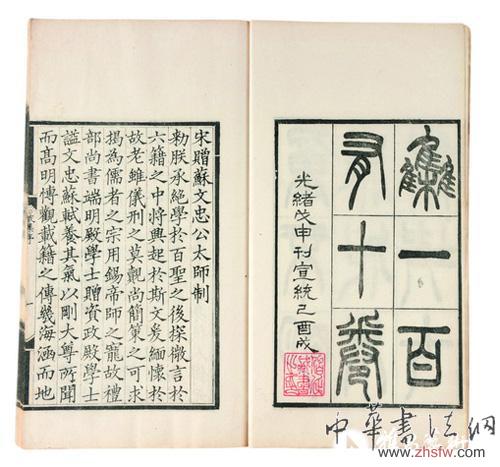 雧一百
有十卷
光緒戊申刊宣統己酉成
宋贈蘇文忠公太師制
勑朕承絕學於百聖之後探微言於
六籍之中將興起於斯文爰緬懷於
故老雖儀刑之莫覿尚簡策之可求
揭為儒者之宗用錫帝師之寵故禮
部尚書端明殿學士贈資政殿學士
謚文忠蘇軾養其氣以剛大尊所聞
而高明博觀載籍之傳幾海涵而地
中華書法網
www.zhsfw.com